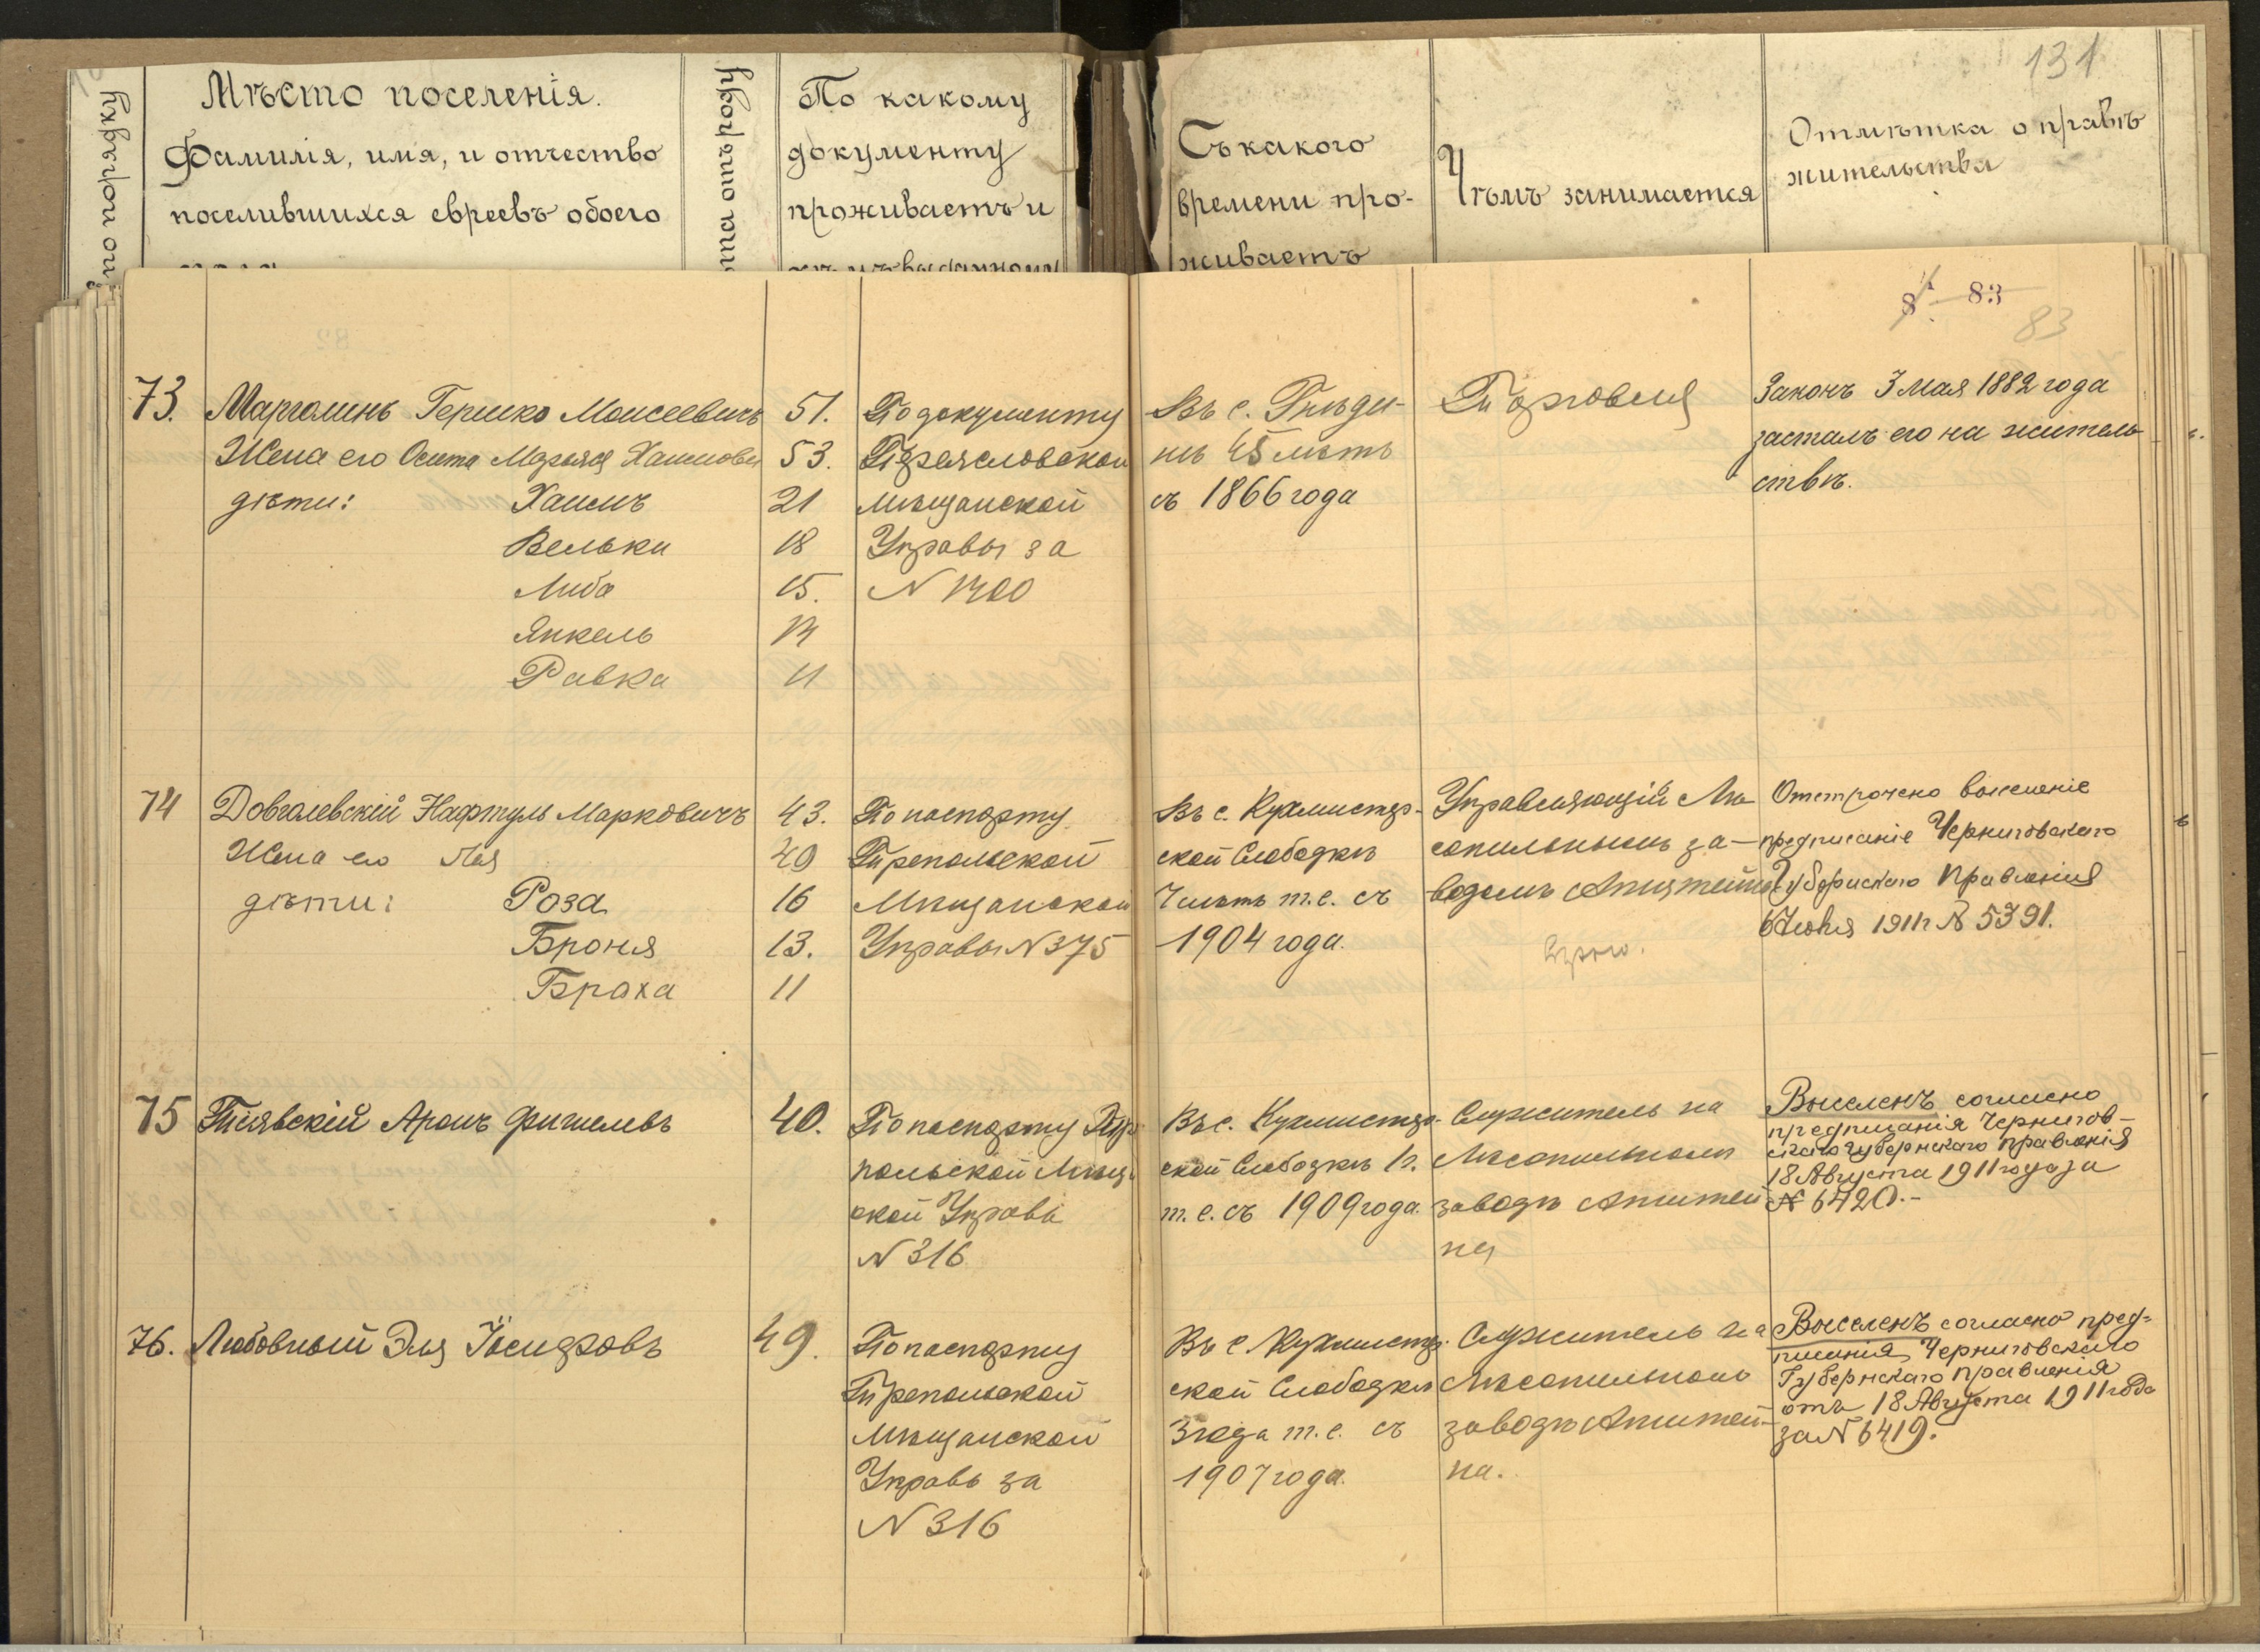 131
№ по порядку
Мѣсто поселенія.
Фамилія, имя, и отчество
поселившихся евреевъ обоего
ъта отъ роду
По какому
документу
проживаетъ и
Съ какого
времени про-
живаетъ
Чѣмъ занимается
Отмѣтка о правѣ
жительства
83
83
73.
Марголинъ Гершко Моисеевичъ
51.
Жена его Марьяся Хаимовы
53.
дѣти: Хаимъ 21
Вельки 18
Либа 15.
Янкель 14
Равка 11
По документу
Переясловской
мѣщанской
Управы за
N 1700
Въ с. Гнѣди-
нѣ 45 лѣтъ
съ 1866 года
Торговля
Законъ 3 мая 1882 года
засталъ его на житель
ствѣ.
74
Довгалевскій Нафтуль Марковичъ 43.
Жена его Лея 40
дѣти: Роза 16
Броня 13.
Браха 11
По паспорту
Трепольской
Мѣщанской
Управы N 375
Въ с. Кухмистер-
ской Слободкѣ
7 лѣтъ т.е. съ
1904 года.
Управляющій Лѣ
сопильнымъ за-
водомъ
Отстрочено выселеніе
предписаніе Черниговскаго
Губернскаго Правленія
1911 г № 5391.
75
Аронъ Фишелевъ
40.
По паспорту Тре
польской Мѣщ
ской Управы
N 316
Въ с. Кухмистер-
ской Слободкѣ 1 г.
т.е. съ 1909 года.
Служитель на
Лѣсопильномъ
заводѣ Апштей
на
Выселенъ согласно
предписанія Чернигов-
скаго губернскаго правленія
18 Августа 1911 года за
№ 6420.-
76.
Любовный Эля Іосифовъ
49.
По паспорту
Трепольской
Мѣщанской
Управы за
N 316
Въ с Кухмистер-
ской Слободкѣ
3 года т.е. съ
1907 года.
Служитель на
Лѣсопильномъ
заводѣ Апштей-
на.
Выселенъ согласно пред-
писанія Черниговскаго
Губернскаго Правленія
отъ 18 Августа 1911 года
за N 6419.